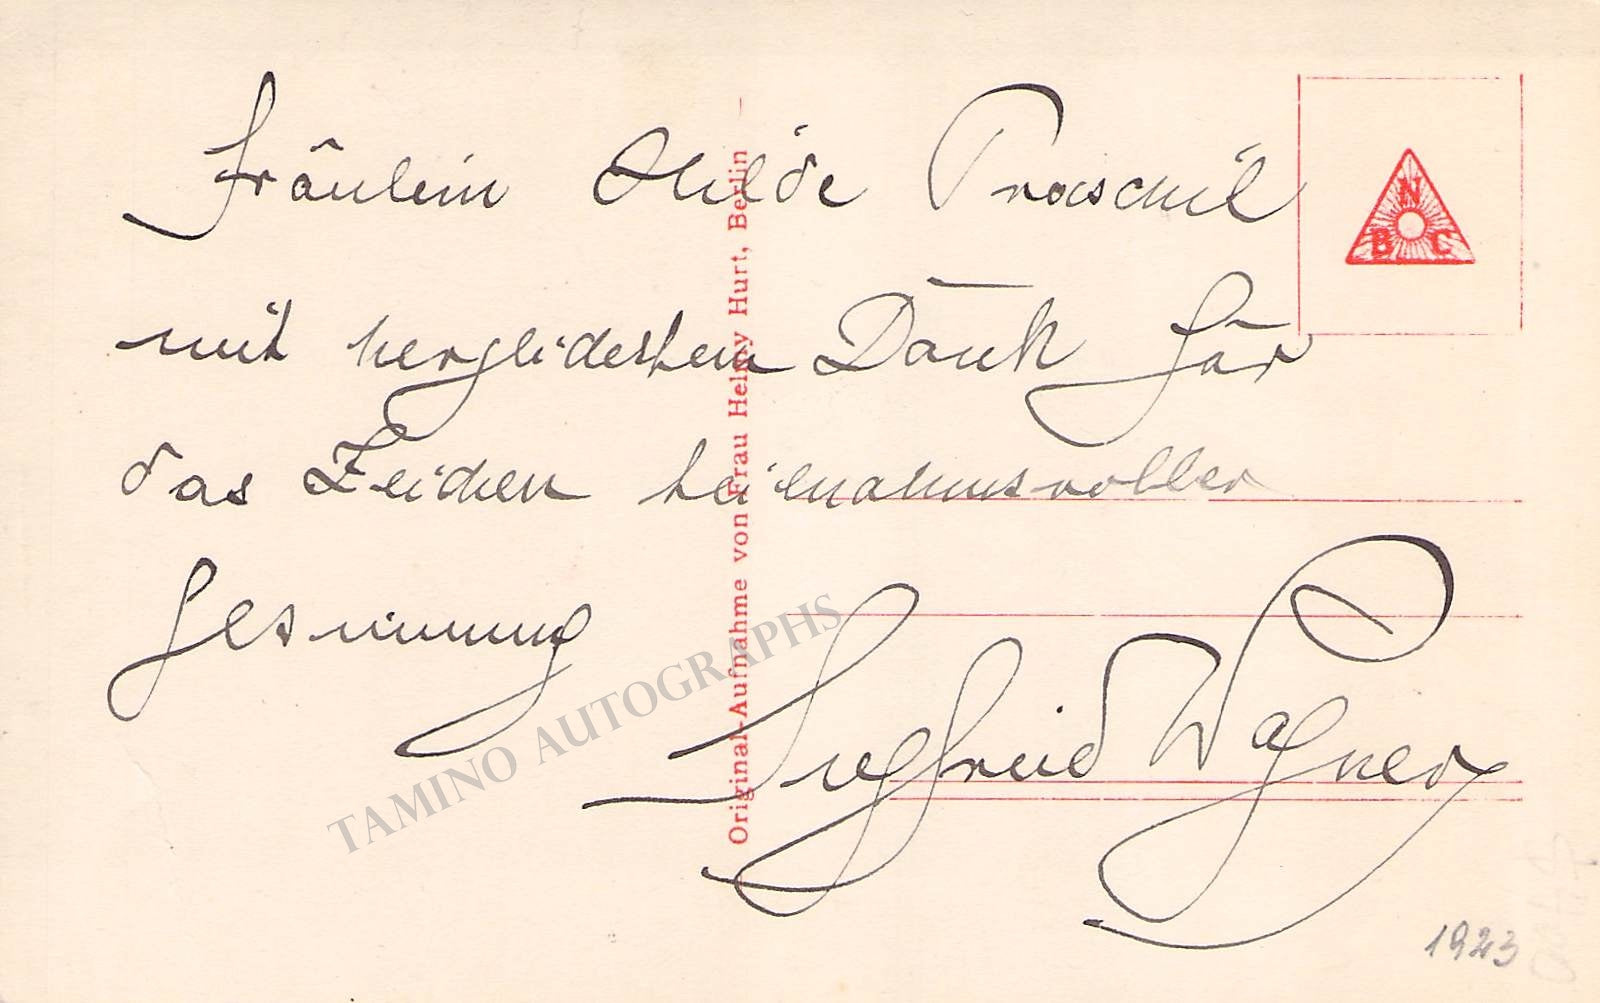 Fräulein Hilde
mit herzlichstem Dank für
das Zeichen teilnahmsvoller
Gesinnung
Siegfried Wagner
1923
N
B C
Original-Aufnahme von Frau Helmy Hurt, Berlin
TAMINO AUTOGRAPHS